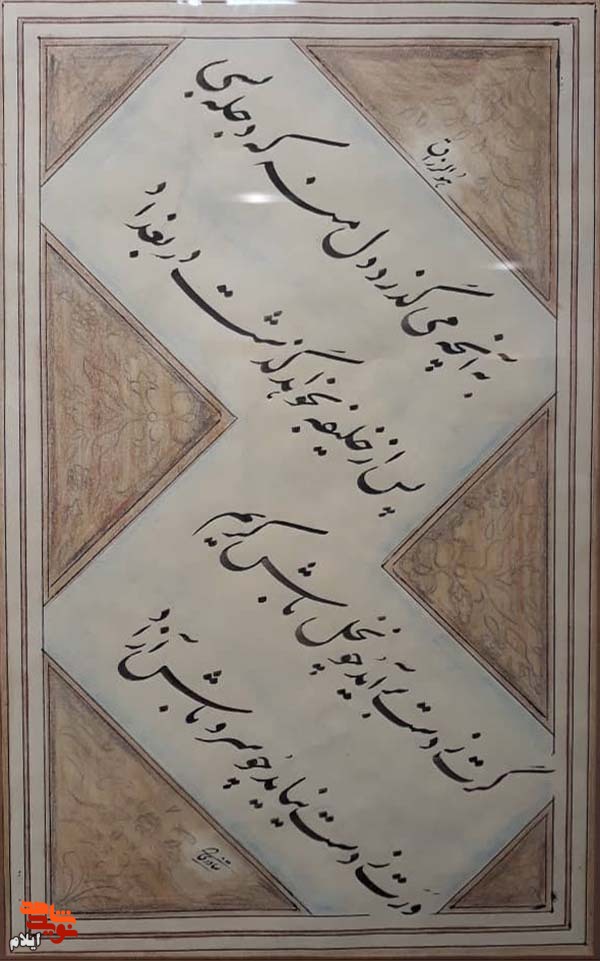 هوالرزاق
به آنچه می‌گذرد دل منه که دجله بسی
پس از خلیفه بخواهد گذشت در بغداد
گرت ز دست برآید چو نخل باش کریم
ورت ز دست نیاید چو سرو باش آزاد
نوید شاهد
ایلام